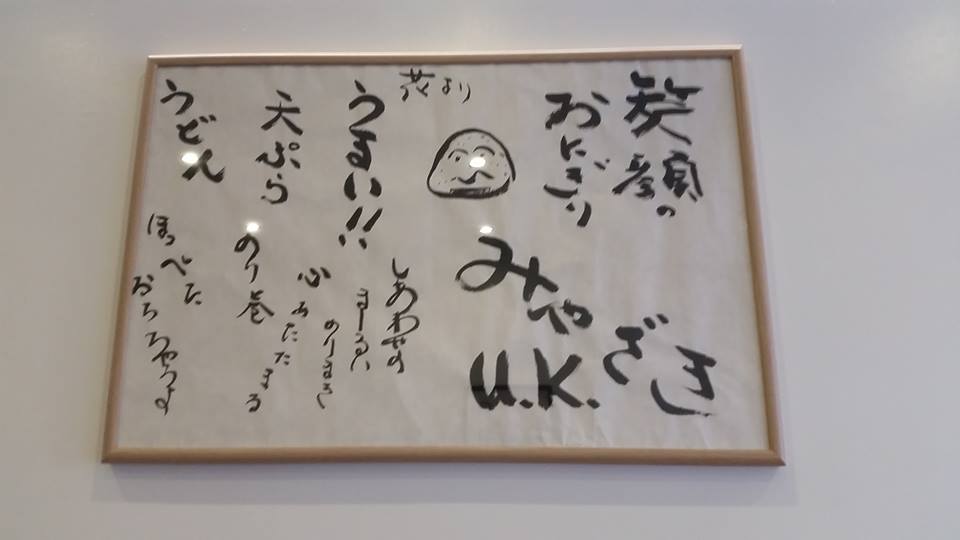 笑顔の
おにぎり
みや
ざき
U.K.
花より
うまい!!
しあわせの
天ぷら
のり巻
心あたたまる
うどん
ほっぺた
おちちゃうよ